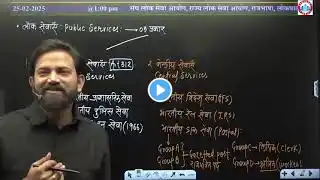 25-02-2025 @1:00 pm संघ लोक सेवा आयोग, राज्य लोक सेवा आयोग, राजभाषा, लोकपाल
• लोक सेवाएँ Public Services: → 03 प्रकार
सेवाएँ Art 312
Services
भारतीय प्रशासनिक सेवा
भारतीय पुलिस सेवा
सेवा (1966)
2 केन्द्रीय सेवाएँ
Central Services
भारतीय विदेश सेवा (IFS)
भारतीय रेल सेवा (I.R.S)
भारतीय डाक सेवा (Postal)
Group A
Group B
Gazetted post
Group C → लिपिक (Clerk)
Group D → (worker)